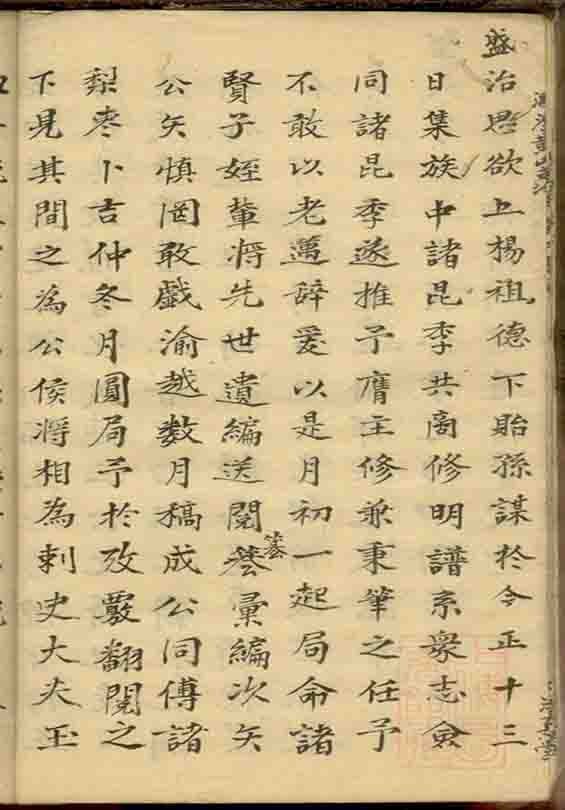 盛治思欲上揚祖德下貽孫謀於今正十三
日集族中諸昆季共商修明譜系衆志僉
同諸昆季遂推予膺主修兼秉筆之任予
不敢以老邁辭爰以是月初一起局命諸
賢子姪輩將先世遺編送閱纂彙編次矢
公矢慎罔敢戲渝越數月稿成公同傅諸
梨枣卜吉仲冬月圓局予於攷覈翻閱之
下見其間之為公侯將相為刺史大夫玉